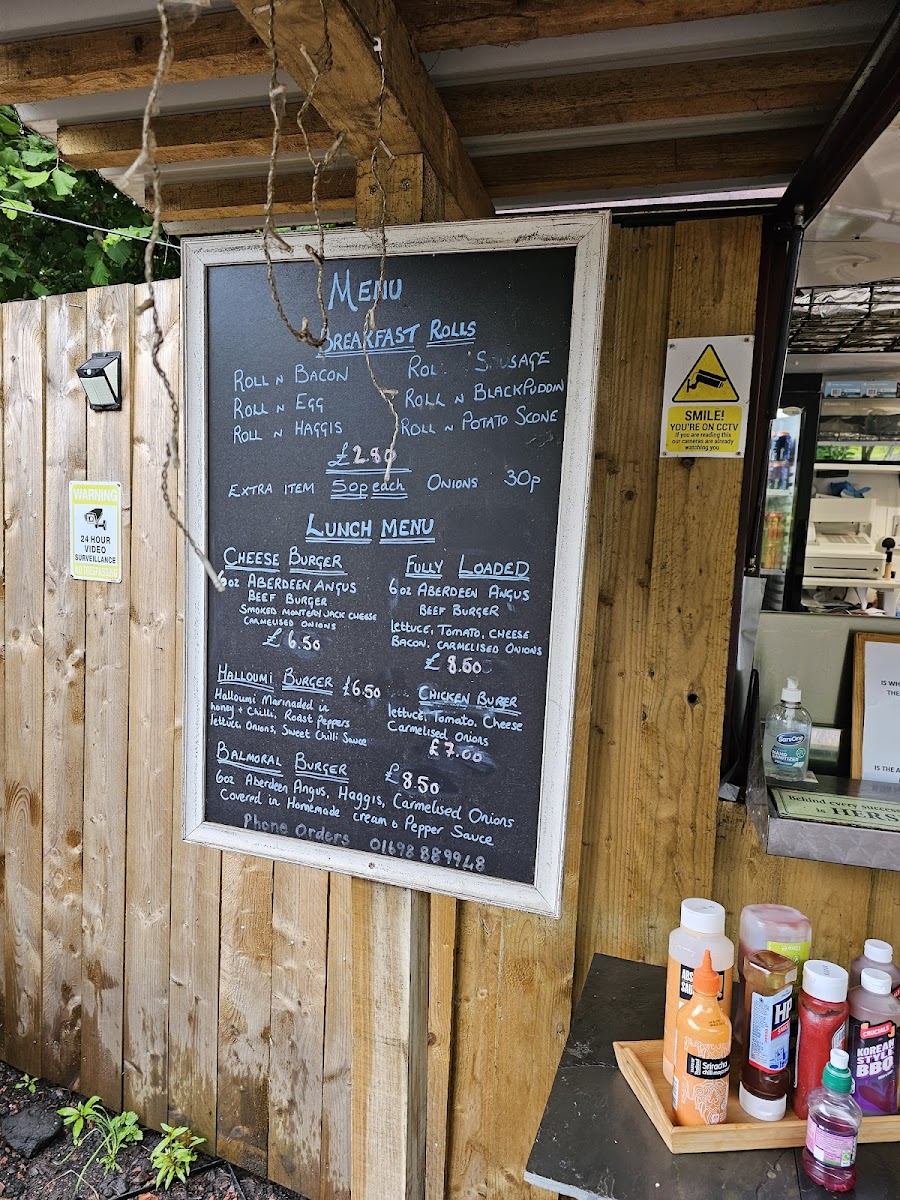 MENU
BREAKFAST ROLLS
ROLL N BACON
ROLL N EGG
ROLL N HAGGIS
ROL SAUSAGE
ROLL N BLACKPUDDIN
ROLL N POTATO SCONE
£2.80
EXTRA ITEM 50p each ONIONS 30p
LUNCH MENU
CHEESE BURGER
6oz ABERDEEN ANGUS
BEEF BURGER
SMOKED MONTERY JACK CHEESE
CARMELISED ONIONS
£6.50
FULLY LOADED
6oz ABERDEEN ANGUS
BEEF BURGER
lettuce, Tomato, CHEESE
BACON, CARMELISED ONIONS
£8.50
HALLOUMI BURGER £6.50
Halloumi Marinaded in
honey + Chilli, Roast Peppers
lettuce Onions, Sweet Chilli Sauce
CHICKEN BURGER
lettuce, Tomato, Cheese
Carmelised Onions
£7.00
BALMORAL BURGER £8.50
6oz Aberdeen Angus, Haggis, Carmelised Onions
Covered in Homemade cream & Pepper Sauce
Phone Orders 01698 889948
WARNING
24 HOUR
VIDEO
SURVEILLANCE
SMILE!
YOU'RE ON CCTV
If you are reading this
our cameras are already
watching you
IS WH
THE
IS THE A
Behind every success
is HERS
HAND
SANITIZER
ABS
SAU
Sriracha
HP
CRUCIALS
KOREAN
STYLE
BBQ